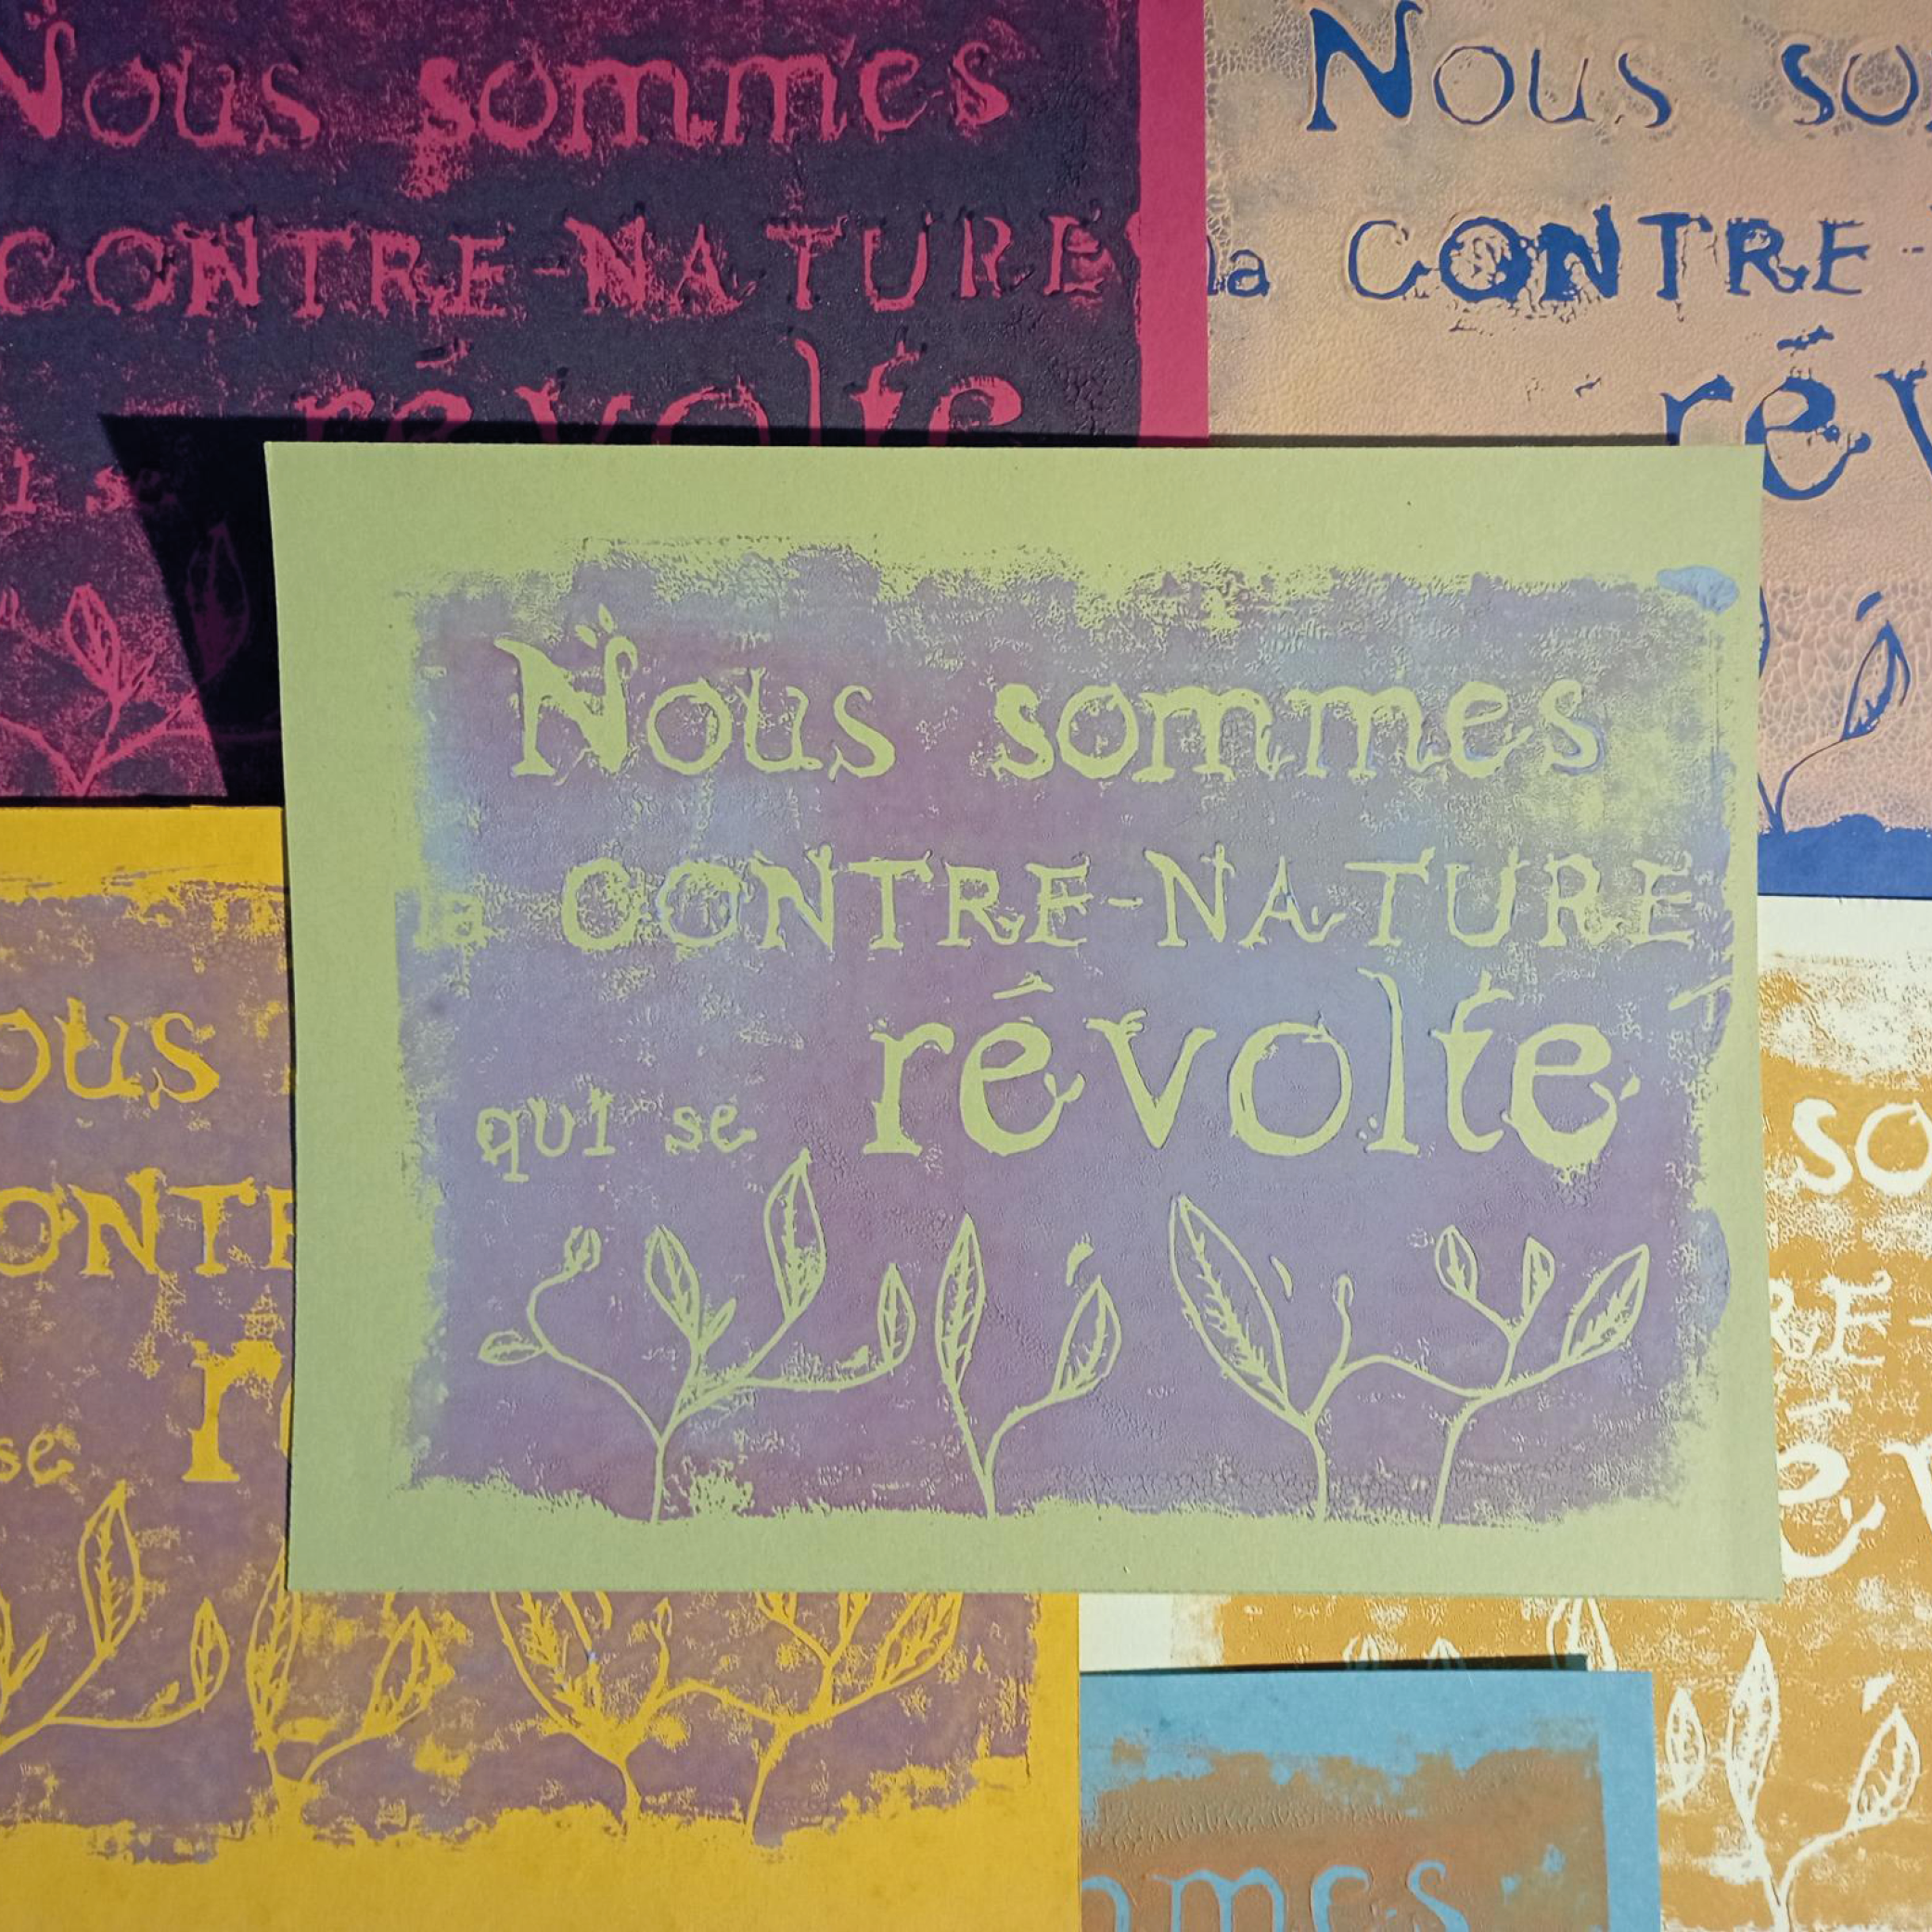 Nous sommes
CONTRE-NATURE
révolte
Nous so
la CONTRE-
rév
Nous sommes
la CONTRE-NATURE
qui se révolte
ous
ONTR
se r
so
RE
mmes